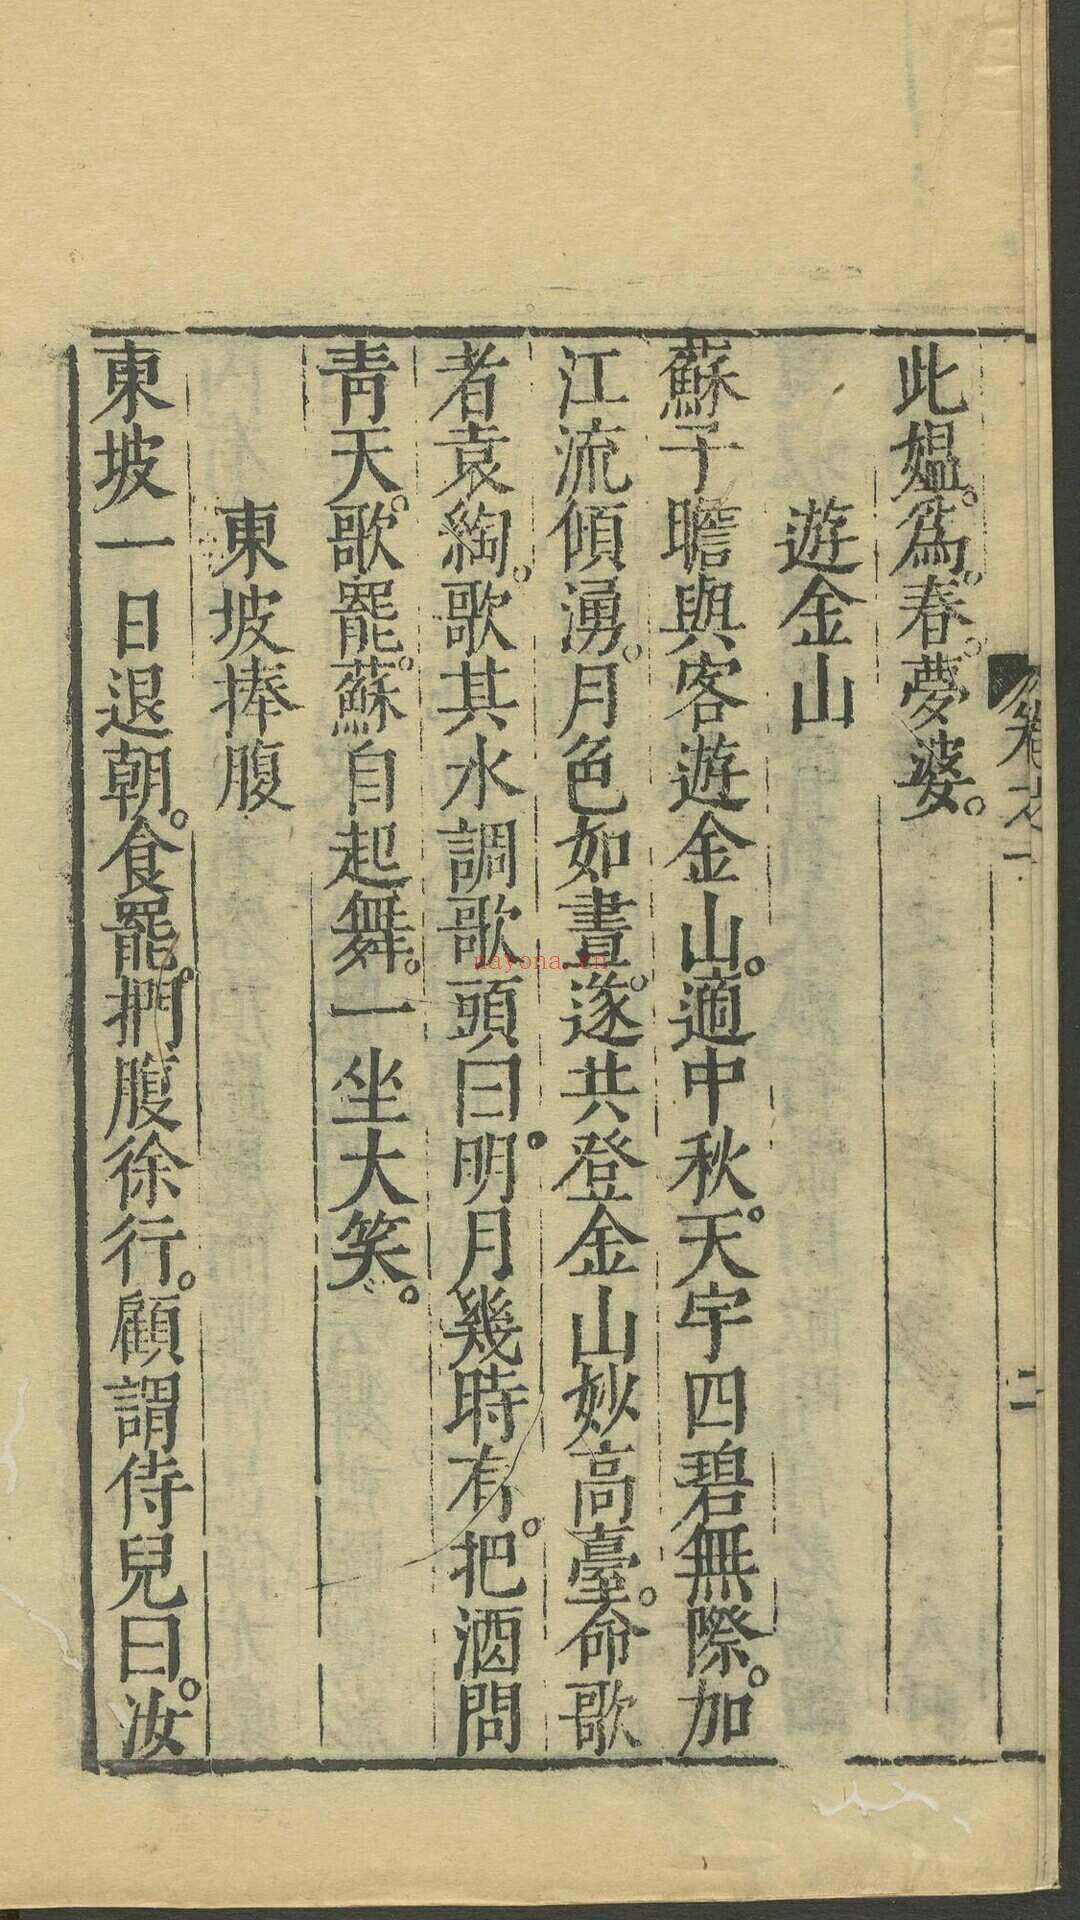 卷之一
二
此媼。為。春。夢婆。
遊金山
蘇子瞻與客遊金山。適中秋。天宇四碧無際。加
江流傾湧。月色如晝。遂共登金山妙高臺。命歌
者袁綯。歌其水調歌頭曰。明月幾時有。把酒問
青天。歌罷。蘇自起舞。一坐大笑。
東坡捧腹
東坡一日退朝。食罷。捫腹徐行。顧謂侍兒曰。汝
nayona.cn